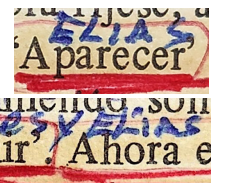 ELIAS
'Aparecer'
es y Elias
ir'. Ahora e